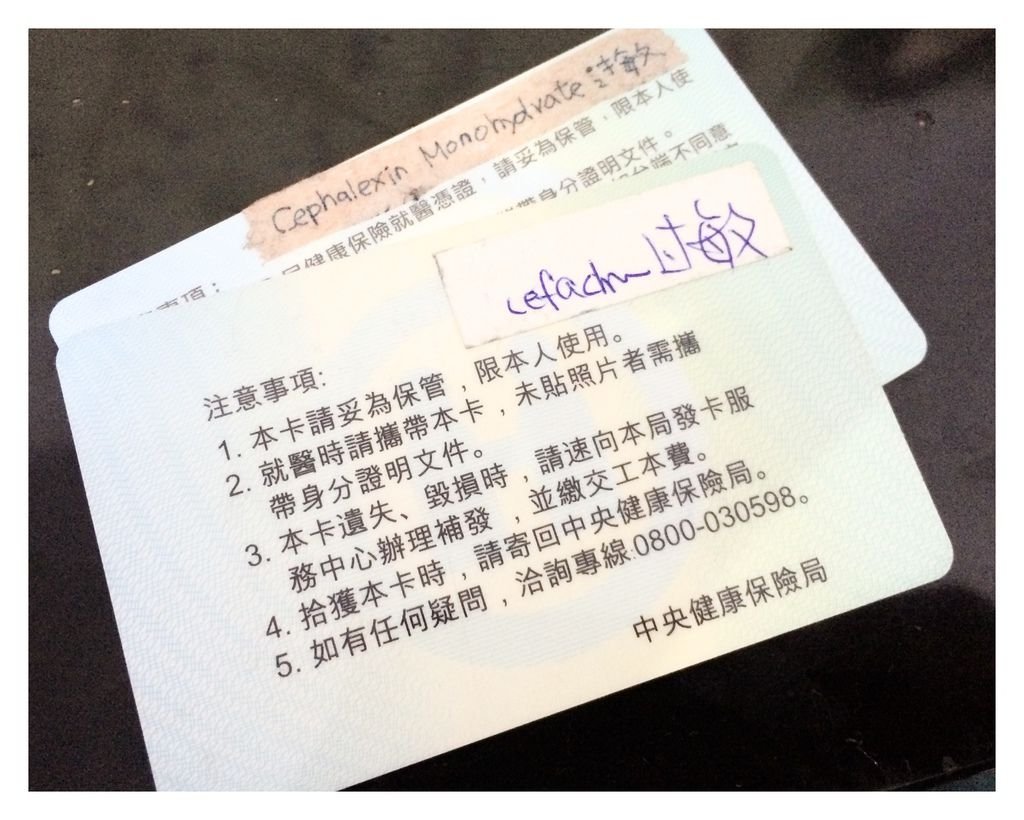 Cephalexin Monohydrate 过敏
健康保險就醫憑證，請妥為保管，限本人使
帶身分證明文件。
端不同意
事項：
過敏
注意事項:
1. 本卡請妥為保管，限本人使用。
2. 就醫時請攜帶本卡，未貼照片者需攜
帶身分證明文件。
3. 本卡遺失、毀損時，請速向本局發卡服
務中心辦理補發，並繳交工本費。
4. 拾獲本卡時，請寄回中央健康保險局。
5. 如有任何疑問，洽詢專線:0800-030598。
中央健康保險局